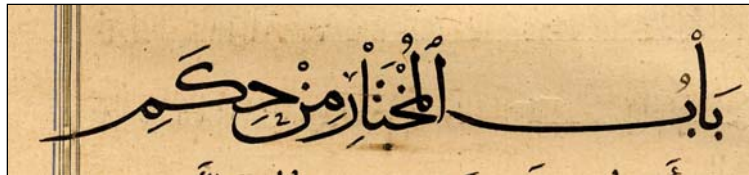 بَابُ الْمُخْتَارِ مِنْ حِكَمِ